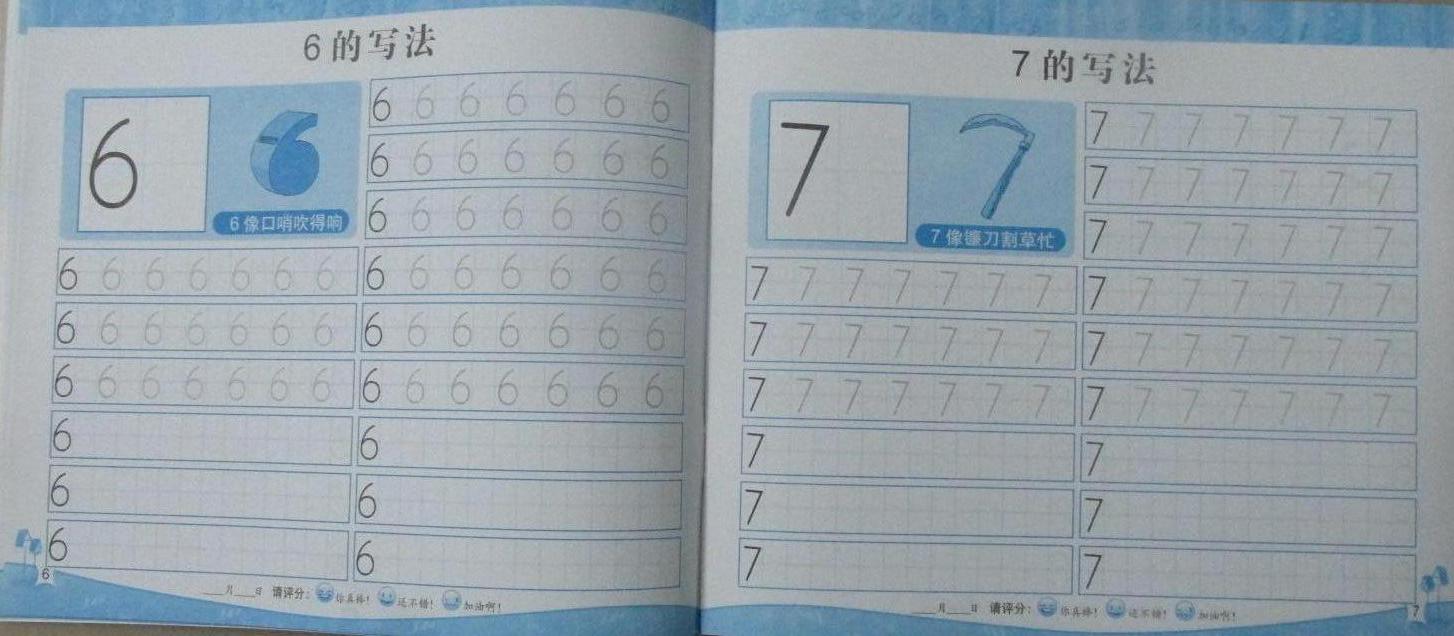 6的写法
6
6像口哨吹得响
6 6 6 6 6 6 6
6 6 6 6 6 6 6
6 6 6 6 6 6 6
6 6 6 6 6 6 6 6 6 6 6 6 6 6
6 6 6 6 6 6 6 6 6 6 6 6 6 6
6 6 6 6 6 6 6 6 6 6 6 6 6 6
6 6
6 6
6 6
6
___月___日 请评分: 你真棒! 还不错! 加油啊!
7的写法
7
7像镰刀割草忙
7 7 7 7 7 7 7
7 7 7 7 7 7 7
7 7 7 7 7 7 7
7 7 7 7 7 7 7 7 7 7 7 7 7 7
7 7 7 7 7 7 7 7 7 7 7 7 7 7
7 7 7 7 7 7 7 7 7 7 7 7 7 7
7 7
7 7
7 7
___月___日 请评分: 你真棒! 还不错! 加油啊!
7